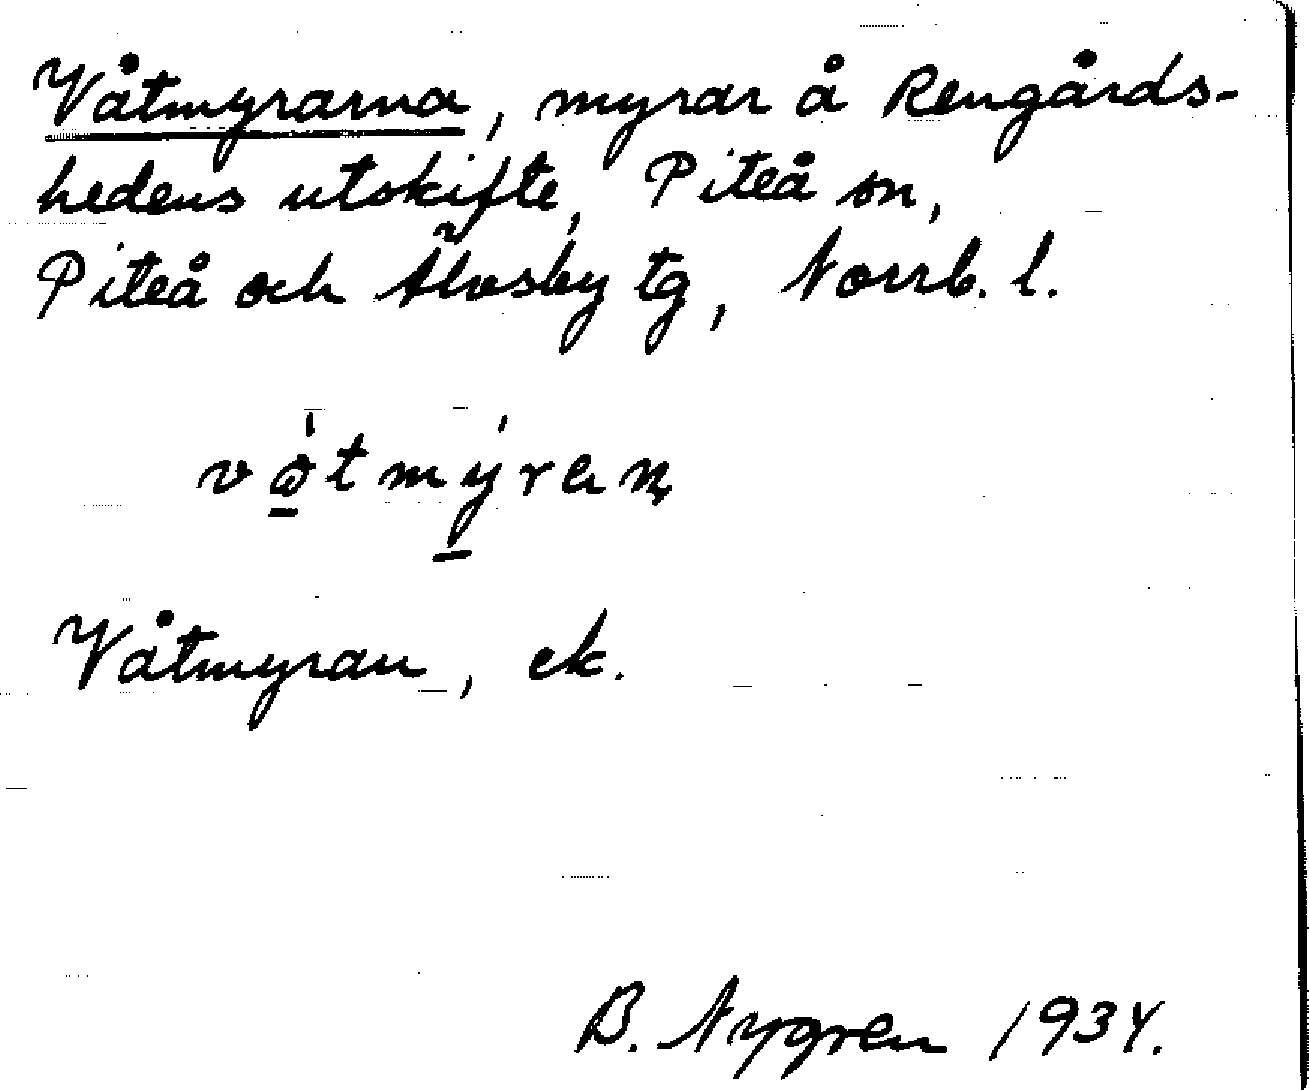 Våtmyrarna, myrar å Rengårds-
hedens utskifte, Piteå sn,
Piteå och Älvsby tg, Norrb. l.
våtmýran
Våtmyran, ek.
B. Nygren 1934.